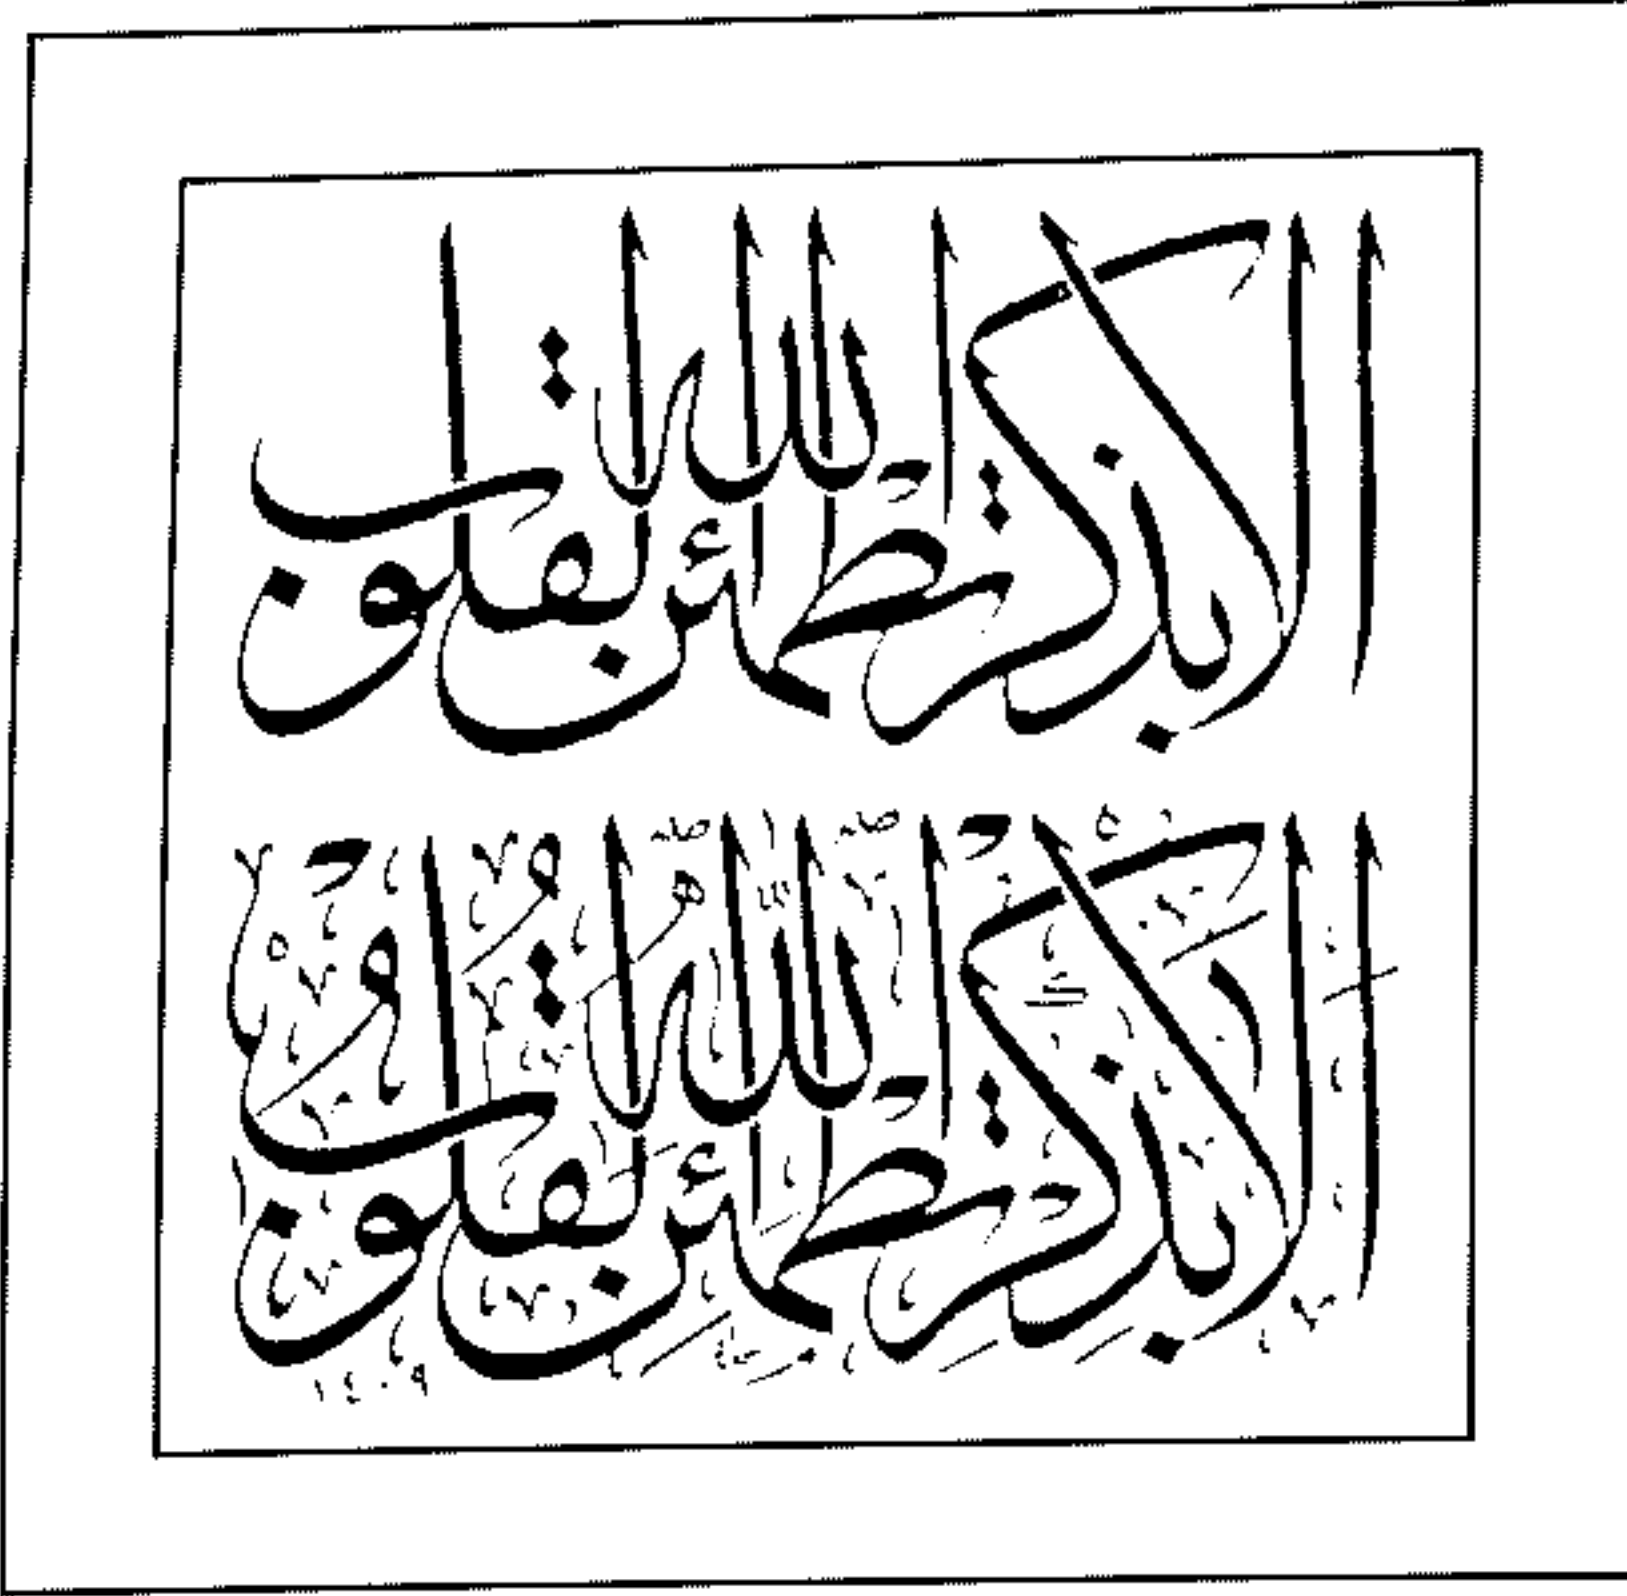 ألا بذكر الله تطمئن القلوب
ألا بذكر الله تطمئن القلوب
١٤٠٩